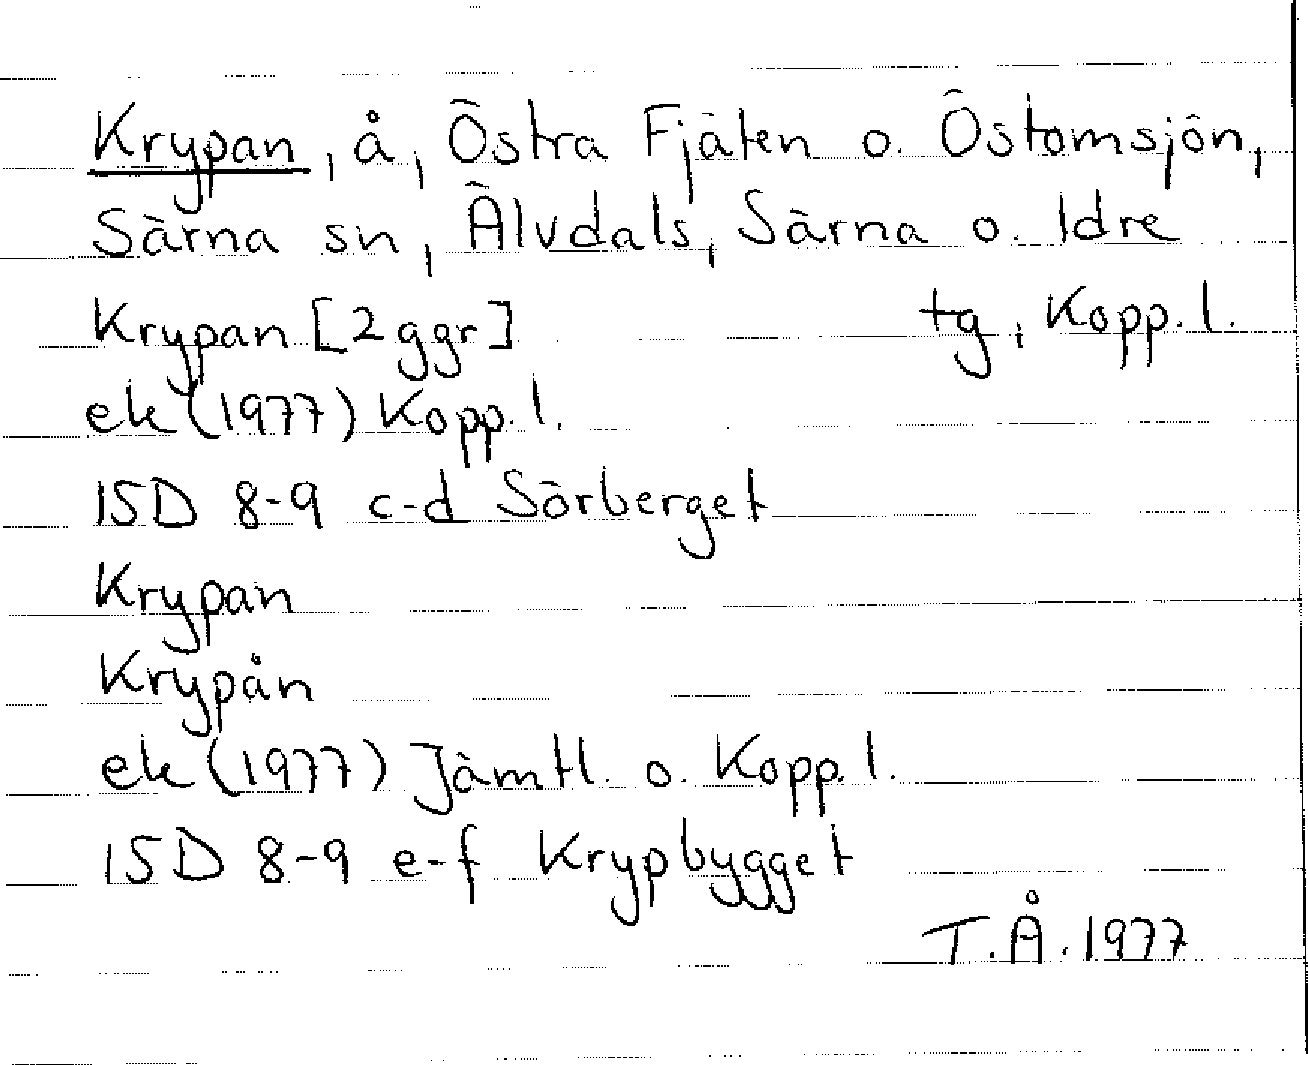 Krypan, å, Östra Fjäten o. Östomsjön,
Särna sn, Älvdals, Särna o. Idre
tg, Kopp. l.
Krypan [2 ggr]
ek (1977) Kopp. l.
15D 8-9 c-d Sörberget
Krypan
Krypån
ek (1977) Jämtl. o. Kopp. l.
15D 8-9 e-f Krypbygget
T.Å. 1977